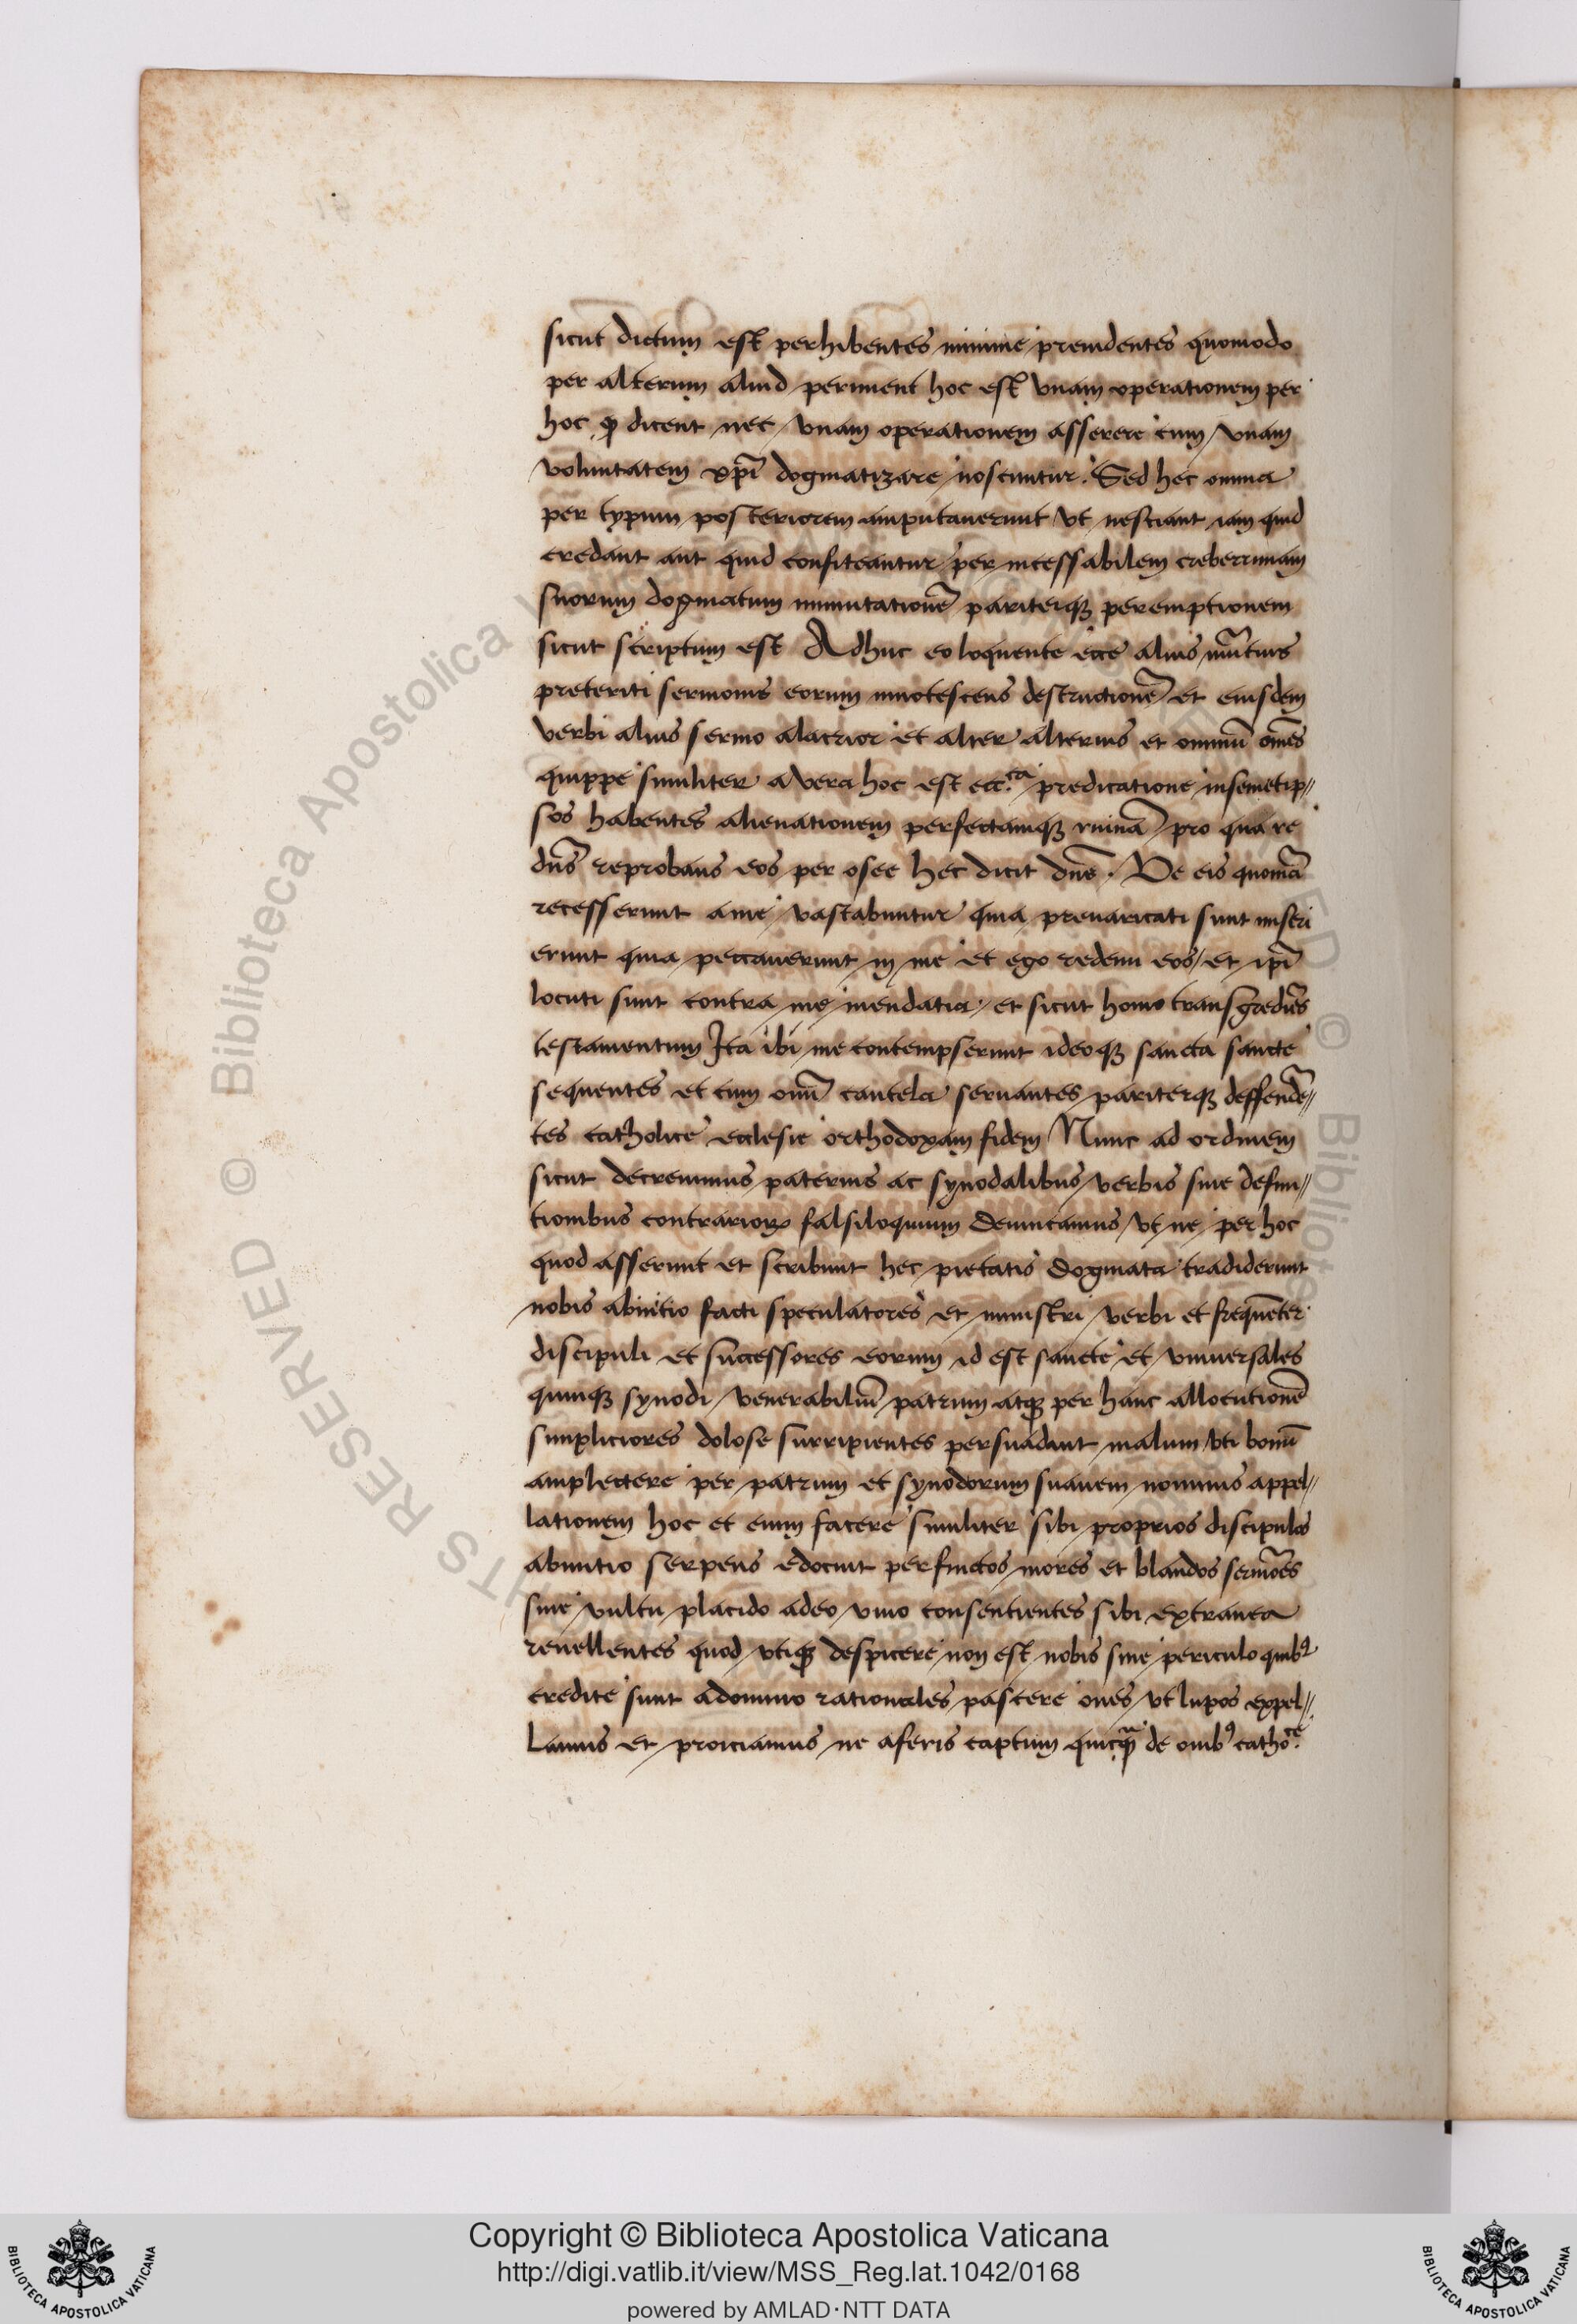 sicut dictum est perhibentes minime preuidentes quomodo
per alterum aliud perimient hoc est vnam operationem per
hoc ꝙ dicent nec vnam operationem asserere cum vnam
voluntatem xp̄i dogmatizare noscuntur. Sed hec omnia
per typum posteriorem amputauerunt vt nesciant iam quid
credant aut quid confiteantur per incessabilem creberrimam
suorum dogmatum inmutationē pariterqꝫ peremptionem
sicut scriptum est Adhuc eo loquente ecce alius nūtius
preteriti sermonis eorum innotescens destructionē et eiusdem
verbi alius sermo alacrior et alter alterius et omniū om̄es
quippe similiter a vera hoc est ecc.ca predicatione in semetip〃
sos habentes alienationem perfectamqꝫ ruinā pro qua re
dn̄s reprobans eos per osee hec dicit dn̄s. Ve eis quoniā
recesserunt a me vastabuntur quia preuaricati sunt miseri
erunt quia peccauerunt in me et ego redemi eos et ip̄i
locuti sunt contra me mendatia et sicut homo transgrediēs
testamentum Ita ibi me contempserunt ideoqꝫ sancta sancte
sequentes et cum om̄i cautela seruantes pariterqꝫ deffendē〃
tes catholice ecclesie orthodoxam fidem Nunc ad ordinem
sicut decreuimus paternis ac synodalibus verbis siue defini〃
tionibus contrarioꝝ falsiloquium deuincamus vt ne per hoc
quod asserunt et scribunt hec pietatis dogmata tradiderunt
nobis ab initio facti speculatores et ministri verbi et frequēter
discipuli et successores eorum id est sancte et vniuersales
quinqꝫ synodi venerabiliū patrum atqꝫ per hanc allocutionē
simpliciores dolose surripientes persuadant malum vti bonū
amplectere per patrum et synodorum suauem nominis appel〃
lationem hoc et enim facere similiter sibi proprios discipulos
ab initio serpens edocuit per finctos mores et blandos sermōes
siue vultu placido adeo viuo consentientes sibi extranea
reuellentes quod vtiqꝫ despicere non est nobis sine periculo quibꝰ
credite sunt a domino rationales pascere oues vt lupos expel〃
lamus et proiciamus ne a feris captum quicqꝫ̄ de om̄ibꝰ catho.ce
Copyright © Biblioteca Apostolica Vaticana
http://digi.vatlib.it/view/MSS_Reg.lat.1042/0168
powered by AMLAD·NTT DATA